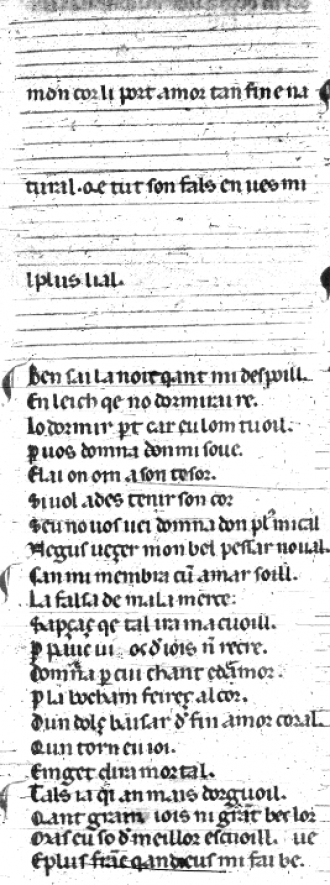 mon cor li port amor tan fine na
tural. qe tut son fals en ues mi
l plus lial.
Ben sai la noit qant mi despoill.
En leich qe no dormirai re.
Lo dormir pt car eu lom tuoil.
p uos domna don mi soue.
Elai on om a son tesor.
Si uol ades tenir son cor
Seu no uos uei domna don pl' mi cal
Negus ueçer mon bel pessar noual.
Can mi membra cū amar soill.
La falsa de mala merce.
Sapçaç qe tal ira ma cuoill.
P pauc ui de iois n̄ recre.
Domna p cui chant e dāmor.
P la bocham feireç al cor.
Dun dolç baisar d' fin amor coral.
Qun torn eu ioi.
E mget dira mortal.
Tals ia qi an mais dorguoil.
Qant gram iois ni grāt bes lor
Oras eu so d' meillor escuoill. ue
E plus frāc qan deus mi fai be.